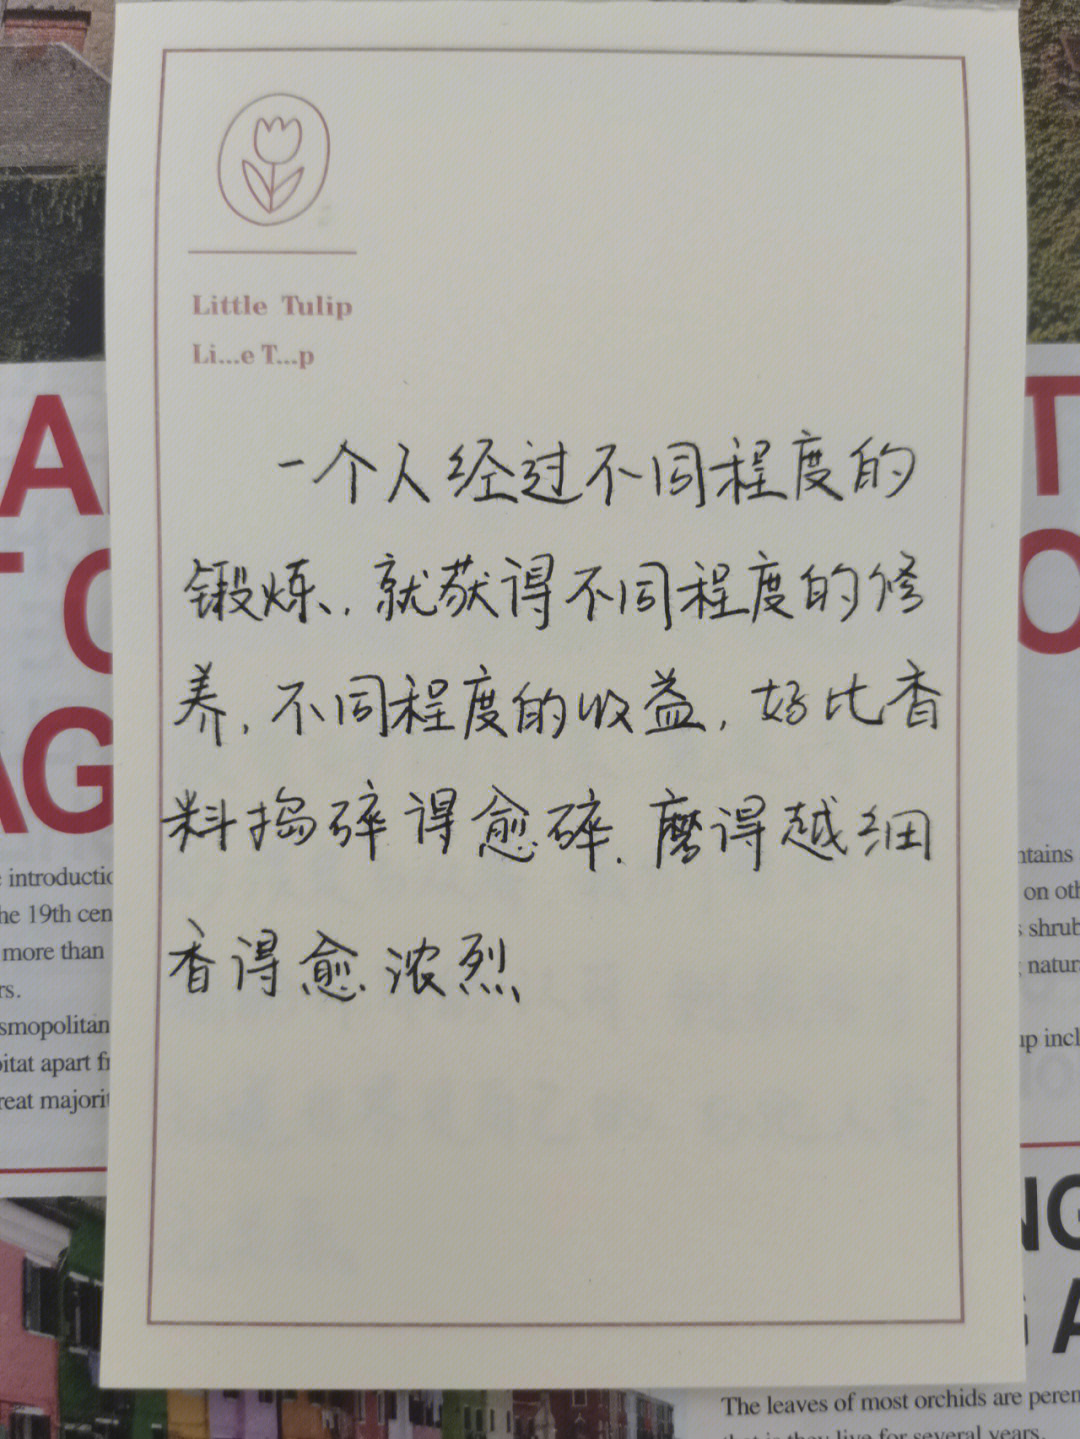 Little Tulip
Li...e T...p
一个人经过不同程度的
锻炼,就获得不同程度的修
养,不同程度的收益,好比香
料捣碎得愈碎.磨得越细
香得愈浓烈
A
T
C
O
AG
introductio
he 19th cen
more than
rs.
smopolitan
itat apart fr
reat majorit
ntains
on oth
shrub
natur
up incl
NG
A
The leaves of most orchids are peren
that is they live for several years.